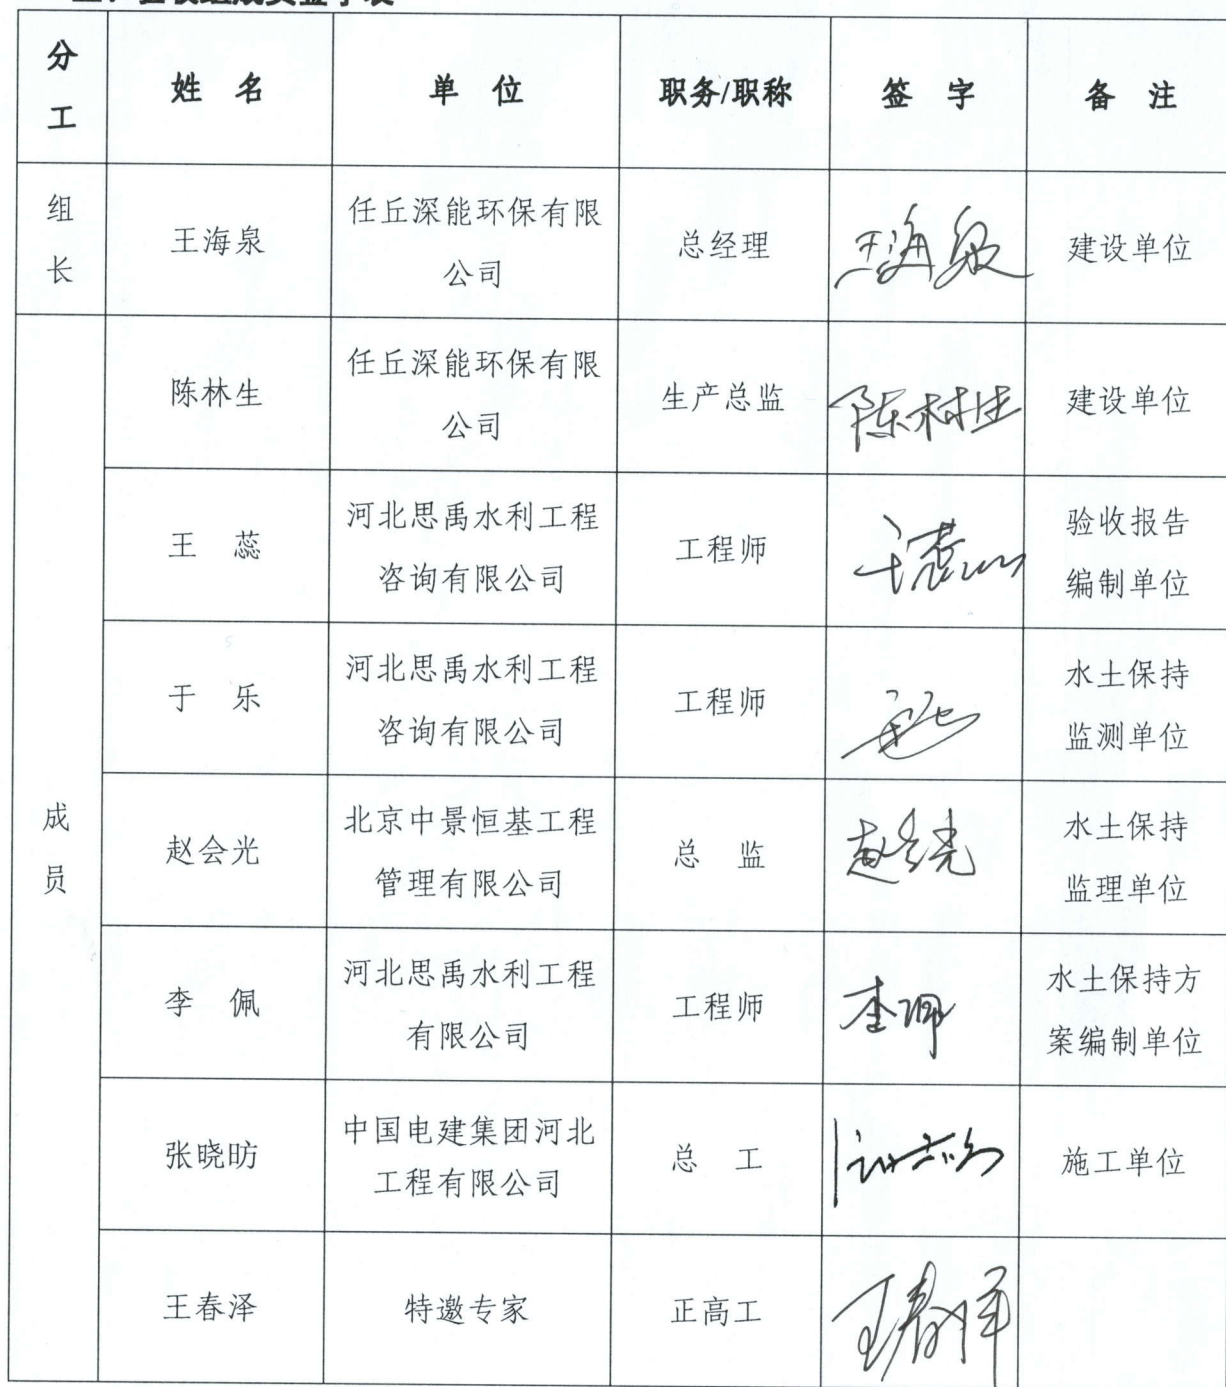 验收组成员签字表
分工 姓 名 单 位 职务/职称 签 字 备 注
组长 王海泉 任丘深能环保有限公司 总经理 王海泉 建设单位
成员
陈林生 任丘深能环保有限公司 生产总监 陈林生 建设单位
王 蕊 河北思禹水利工程咨询有限公司 工程师 王蕊 验收报告编制单位
于 乐 河北思禹水利工程咨询有限公司 工程师 水土保持监测单位
赵会光 北京中景恒基工程管理有限公司 总 监 赵会光 水土保持监理单位
李 佩 河北思禹水利工程有限公司 工程师 李佩 水土保持方案编制单位
张晓昉 中国电建集团河北工程有限公司 总 工 施工单位
王春泽 特邀专家 正高工 王春泽